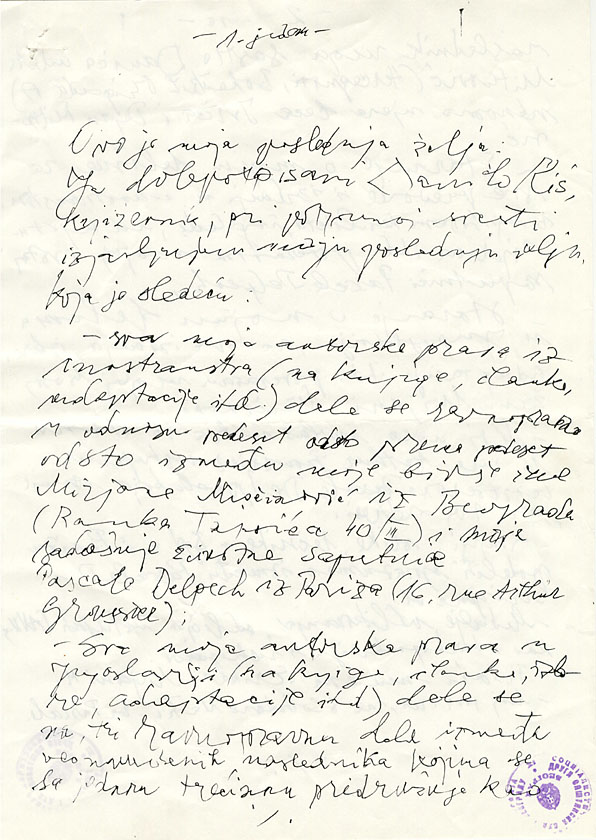 - 1. jedan -
Ovo je moja poslednja želja.
Ja dolepotpisani Danilo Kiš,
književnik pri potpunoj svesti
izjavljujem moju poslednju volju,
koja je sledeća:
- sva moja autorska prava iz
inostranstva (na knjige, članke,
adaptacije itd.) dele se ravnopravno
u odnosu pedeset odsto prema pedeset
odsto između moje bivše žene
Mirjane Miočinović iz Beograda
(Ranka Tajsića 40/III) i moje
sadašnje životne saputnice
Pascale Delpech iz Pariza (16, rue Arthur
Groussier);
- Sva moja autorska prava u
Jugoslaviji (na knjige, članke,
adaptacije itd) dele se
na tri ravnopravna dela između
naslednika kojima se
sa jednom trećinom pridružuje kao
./.